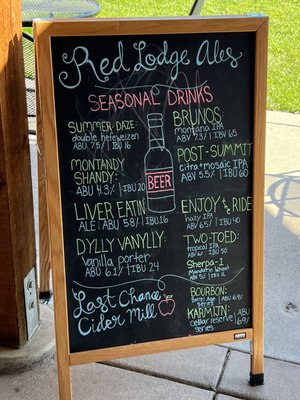 Red Lodge Ales
SEASONAL DRINKS
SUMMER DAZE:
double hefeweizen
ABU 7.5% | IBU 16
MONTANDY
SHANDY:
ABU 4.3% | IBU 20
LIVER EATIN'
ALE ABU 5.8% | IBU 16
DYLLY VANYLLY:
Vanilla porter
ABU 6.1% | IBU 24
Last Chance
Cider Mill
BEER
BRUNOS:
montana IPA
ABV 7.3% IBV 65
POST-SUMMIT
citra + mosaic IPA
ABV 5.5% | IBU 60
ENJOY the RIDE
hazy IPA
ABV 6.5% | IBU 40
TWO-TOED:
tropical IPA
IBU 50
Sherpa-1
Mandarin Wheat
BOURBON:
Barrel Age
series
KARMIJN:
cellar reserve
series
ABU
6.9%